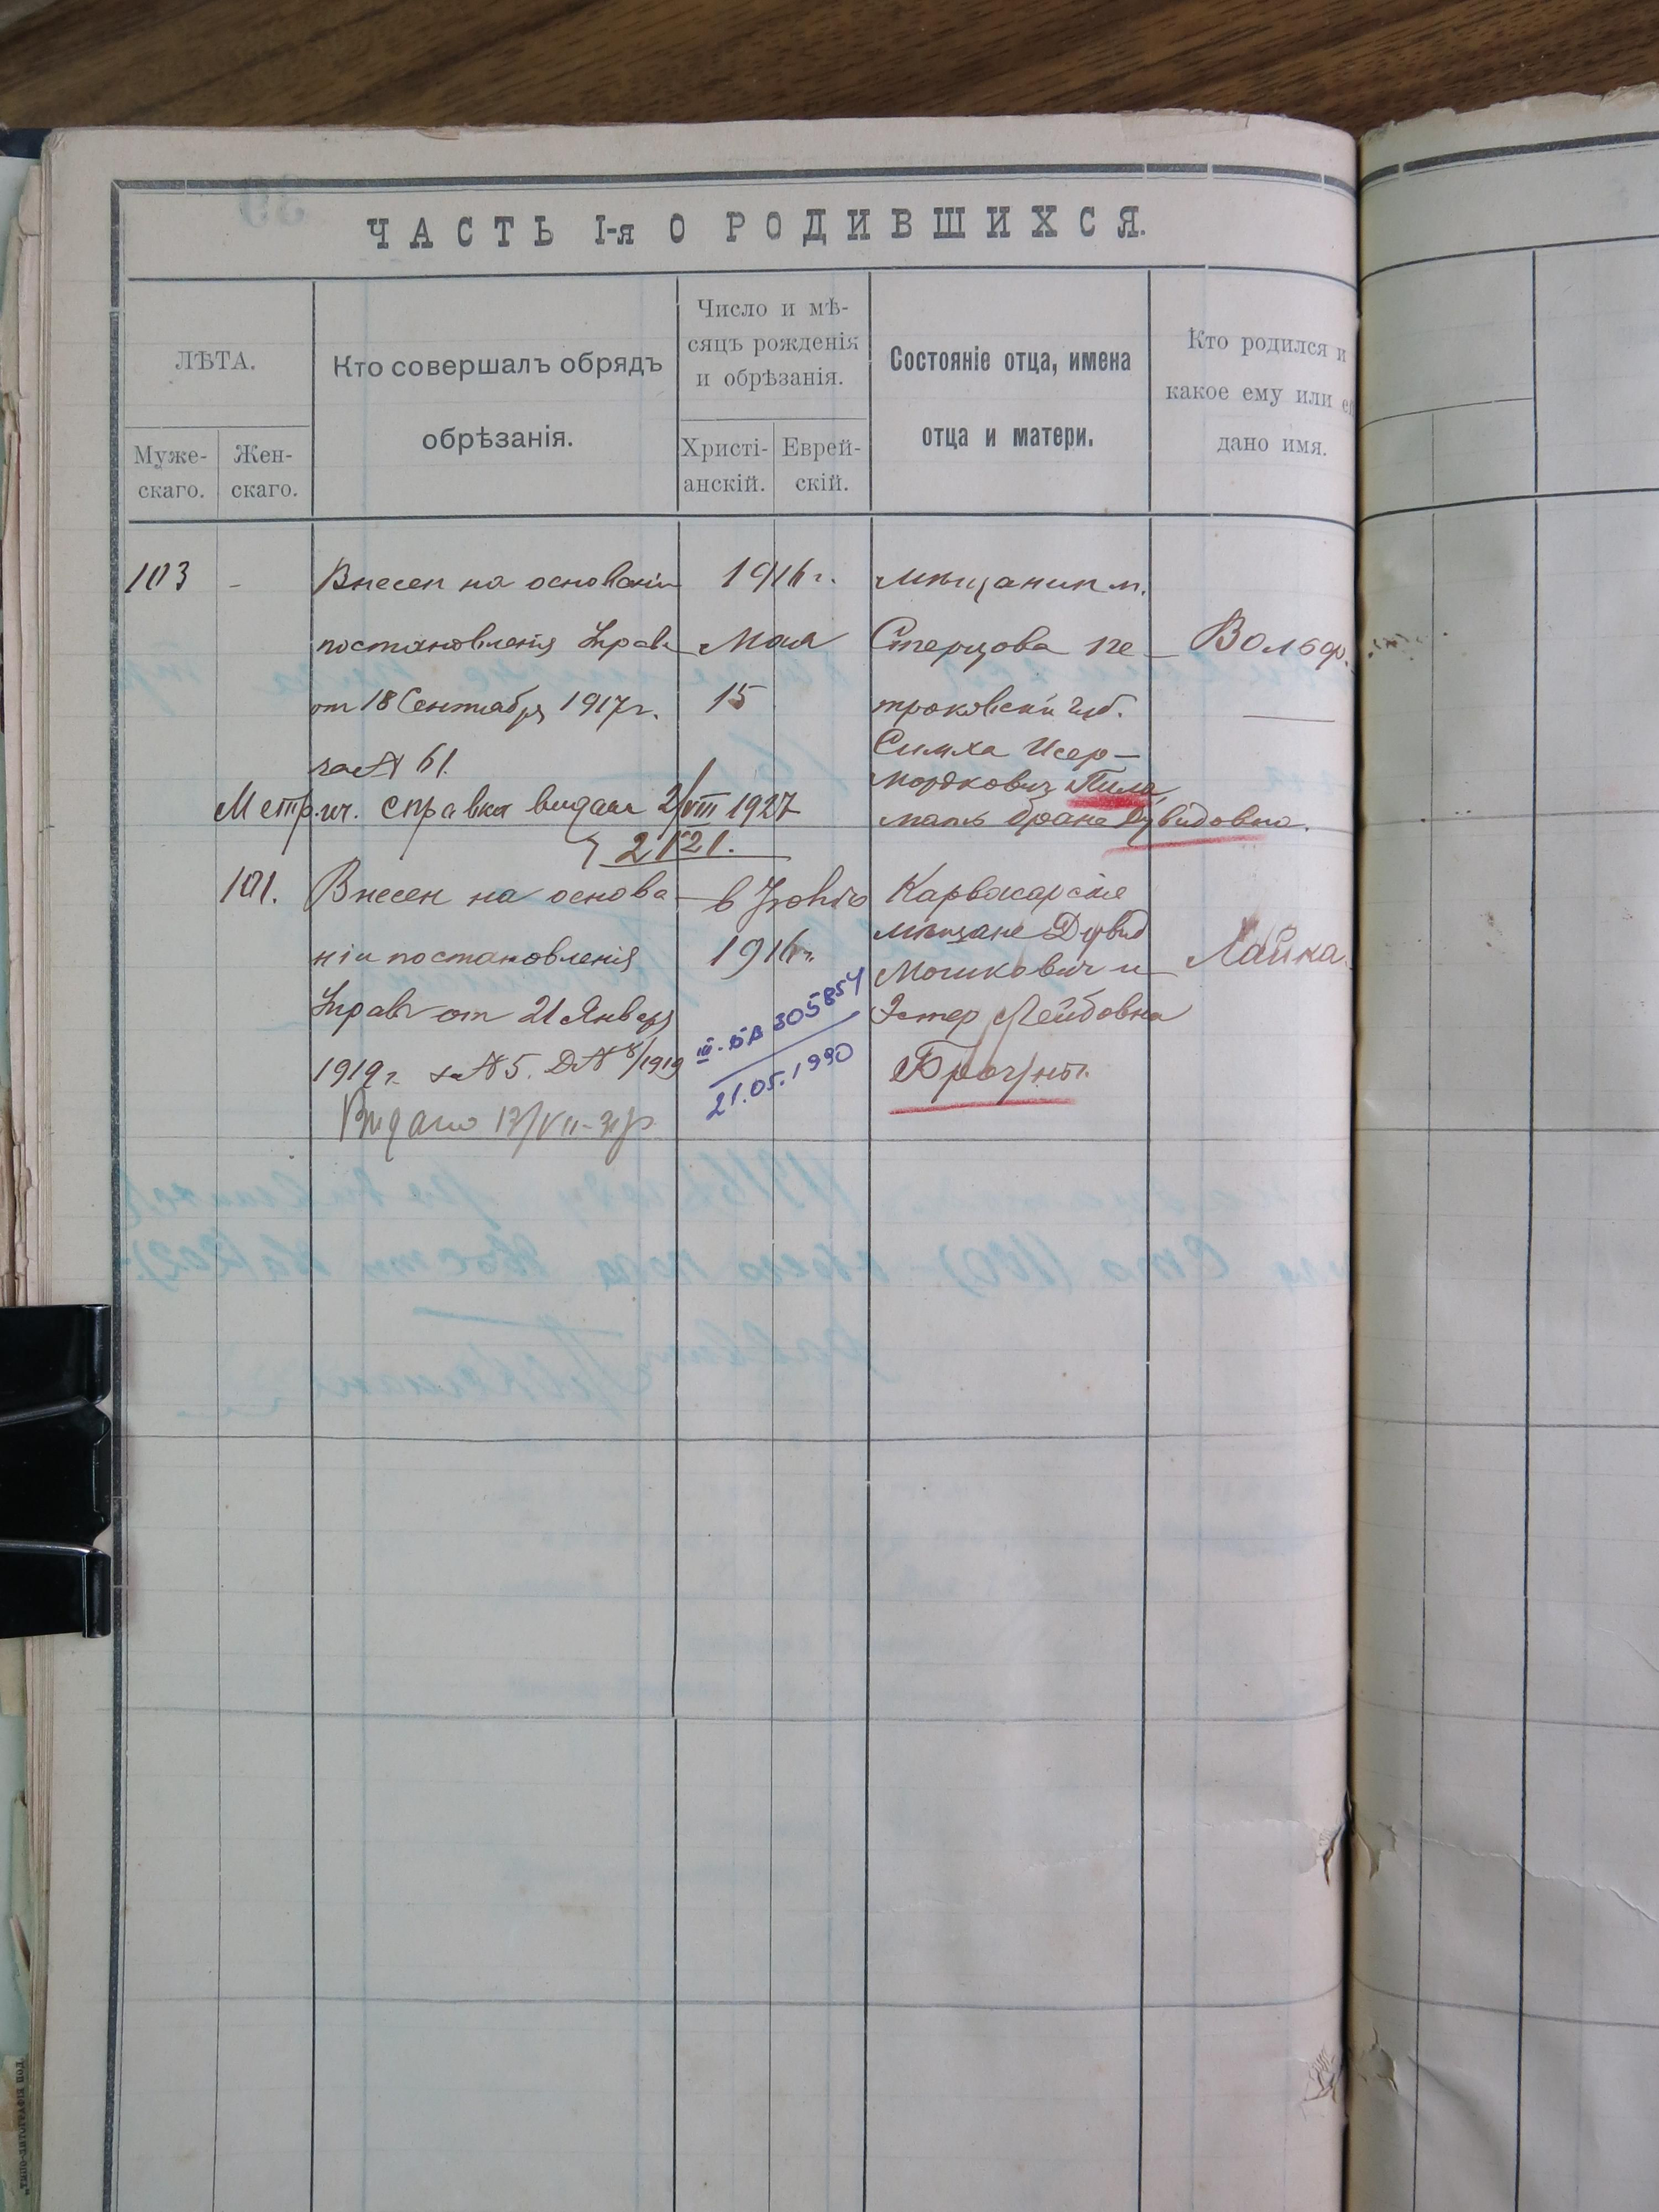 ЧАСТЬ I-я О РОДИВШИХСЯ.
ЛѢТА.
Муже-
скаго.
Жен-
скаго.
Кто совершалъ обрядъ
обрѣзанія.
Число и мѣ-
сяцъ рожденія
и обрѣзанія.
Христі-
анскій.
Еврей-
скій.
Состояніе отца, имена
отца и матери.
Кто родился и
какое ему или
дано имя.
103 -
Внесен на основаніи
постановленія Управ
от 18 Сентября 1917 г.
за № 61.
1916 г.
Мая
15
мѣщанин м.
Сперцова Пе-
троковскій губ.
Симха Исер-
Мордкович Пила,
мать Брана Дувидовна.
Вольф.
Метрич. справка видана 2/VIII 1927
2121.
101.
Внесен на основа-
ніи постановленія
Управ от 21 Января
1919 г. за № 5. Д № 8/1919
Видано 17/VII-31р
в Іюнѣ
1916 г.
III-БА 305854
21.05.1990
Карвасарскіе
мѣщане Дувид
Мошкович и
Эстер Лейбовна
Лайка.